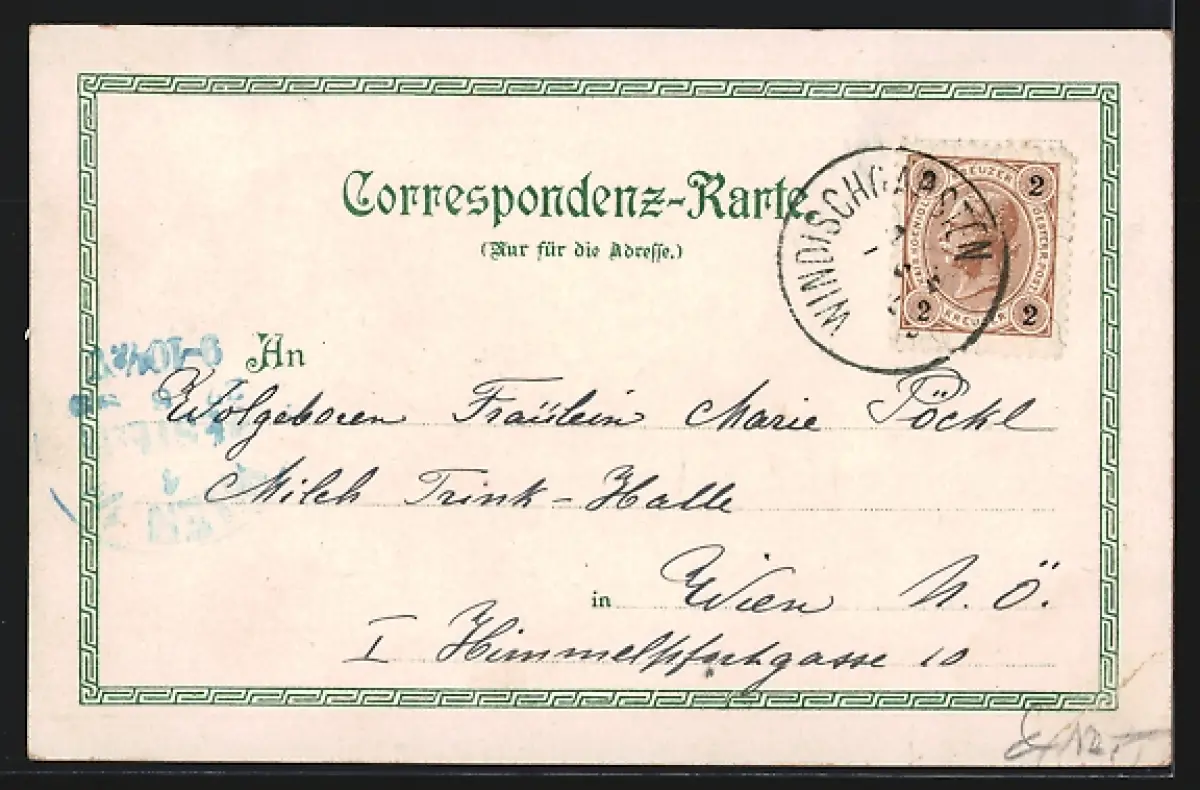 Correspondenz-Karte.
(Nur für die Adresse.)
WINDISCHGARSTEN
2 KREUZER 2
KAIS. KOENIGL. OESTERR. POST
2 KREUZER 2
An
Wolgeboren Fräulein Marie Pöckl
Milch Trink-Halle
in Wien N.Ö.
I Himmelpfortgasse 10